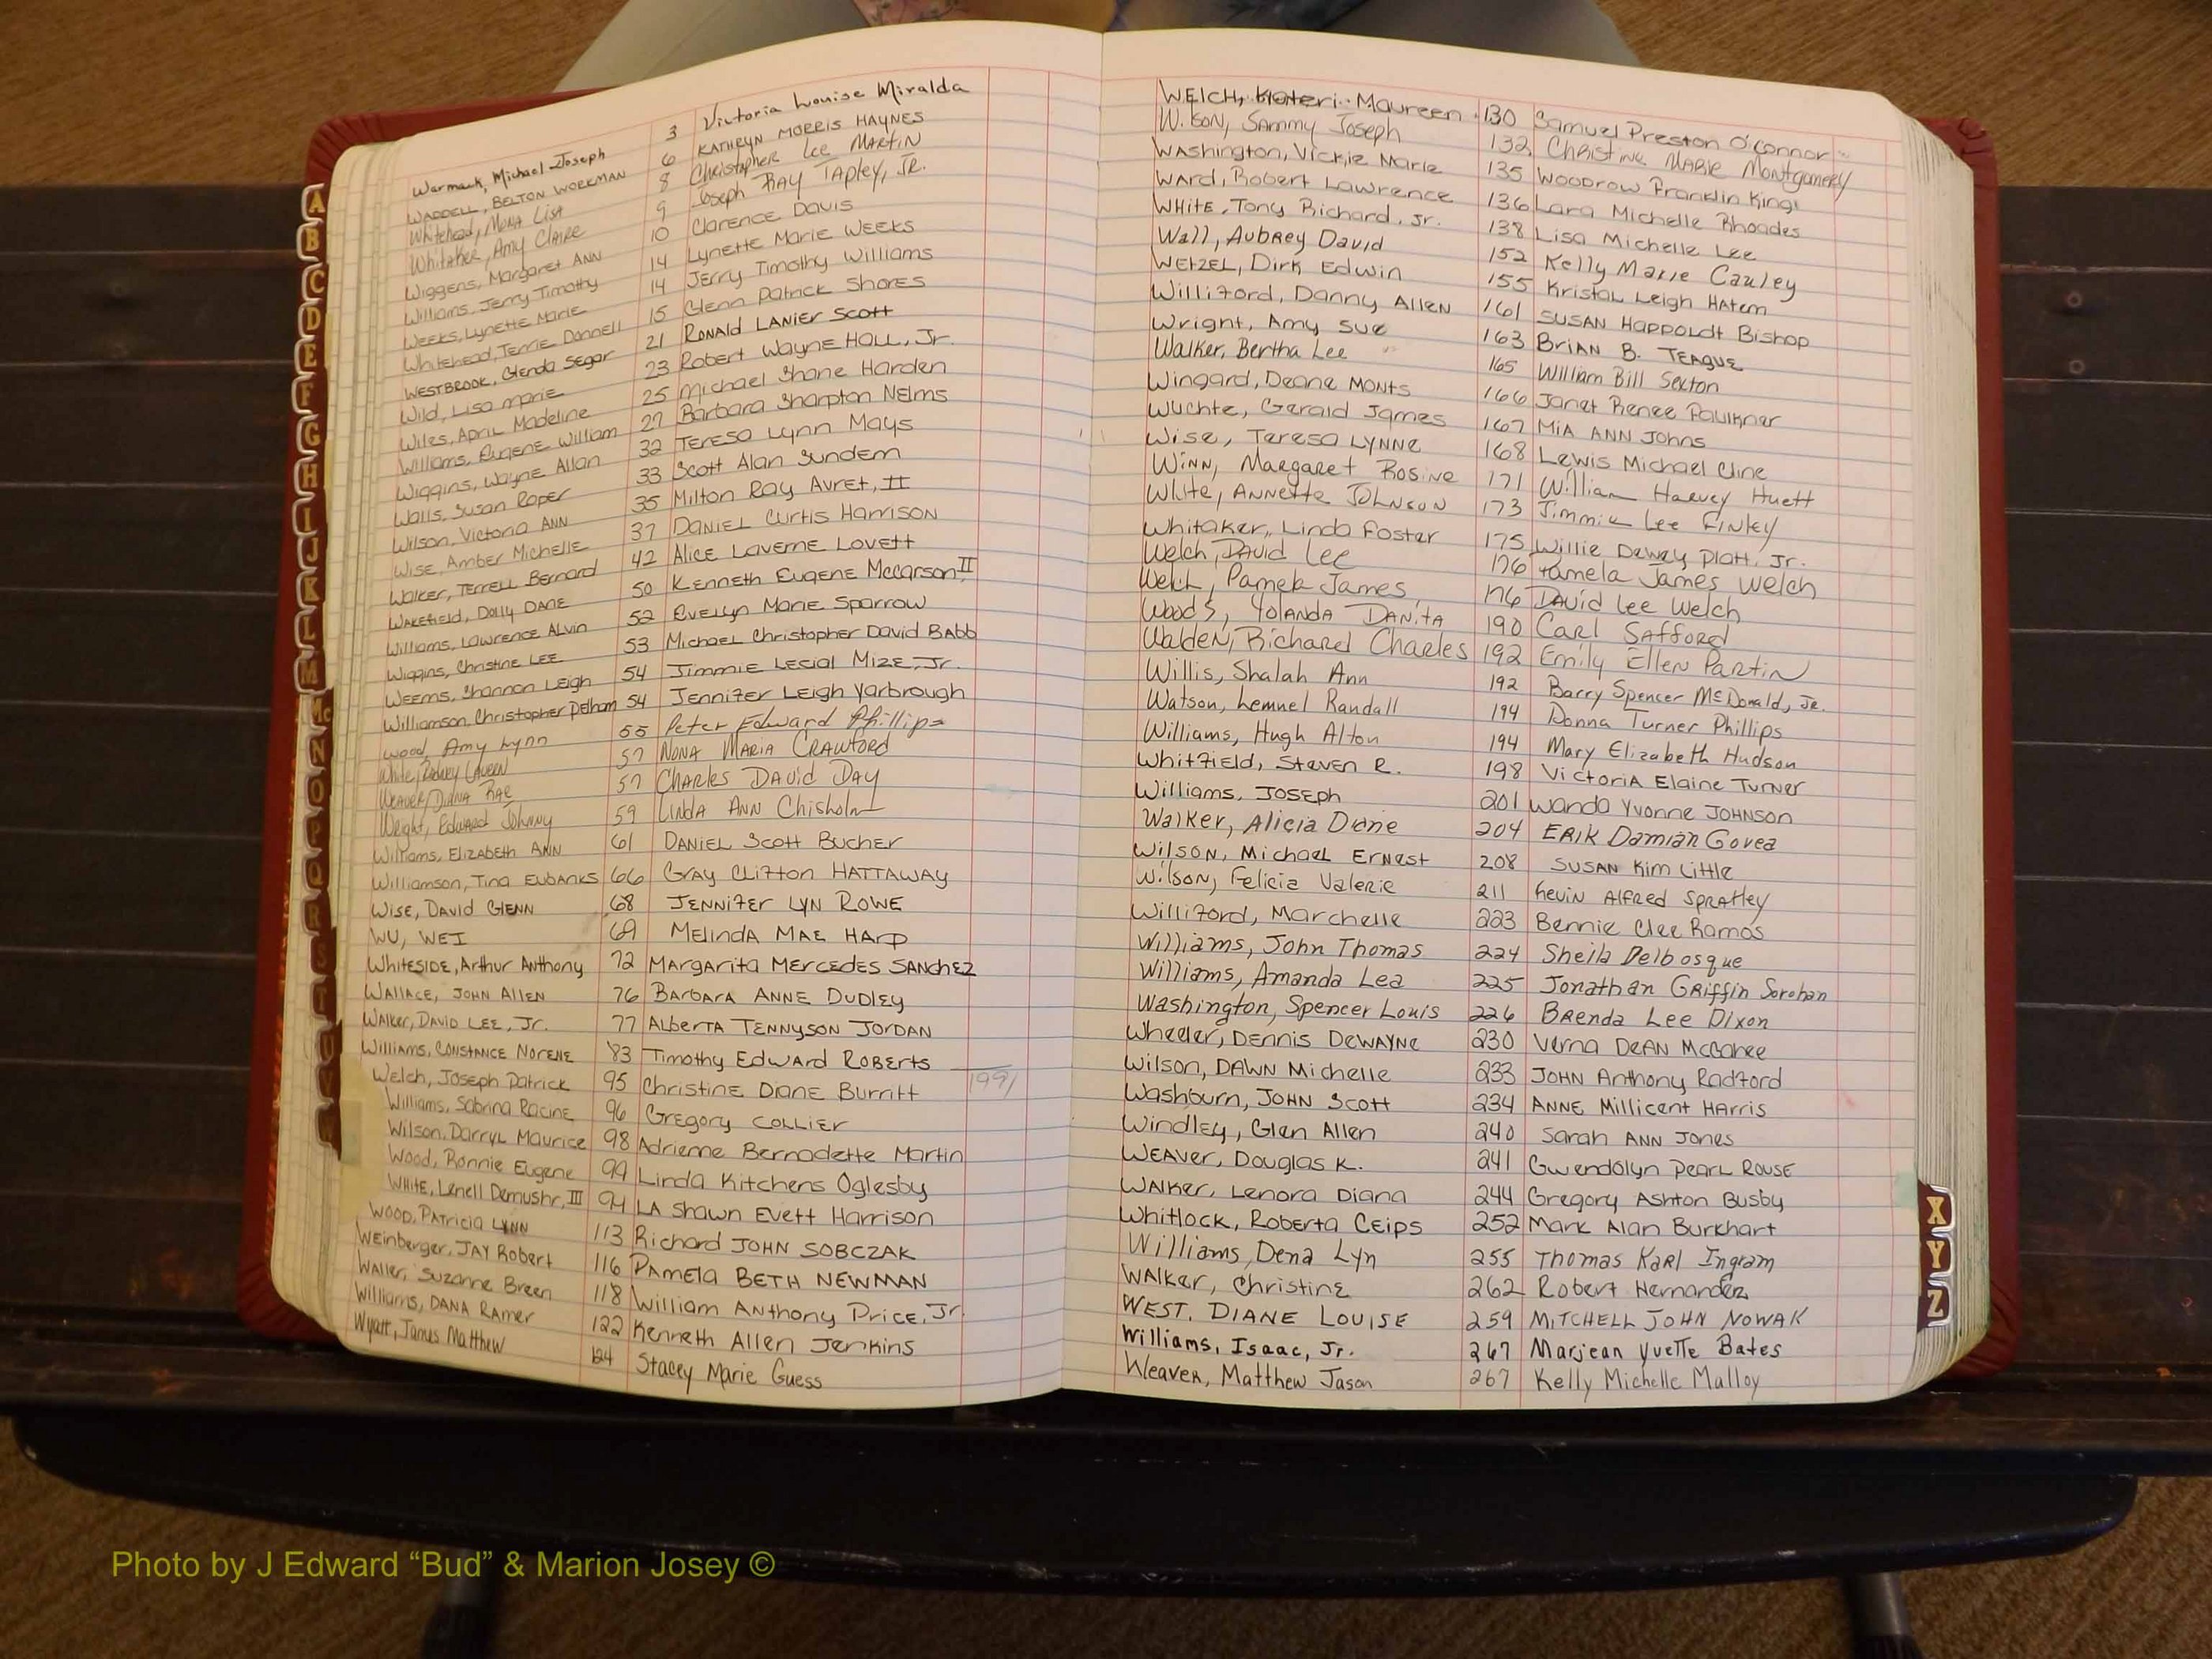 Warmack, Michael Joseph 3 Victoria Louise Miralda
WADDELL, BELTON WORKMAN 6 KATHRYN MORRIS HAYNES
Whitehead, MONA LISA 8 Christopher Lee MARTIN
Whitaker, Amy CLAIRE 9 Joseph RAY TAPley, JR.
Wiggens, Margaret ANN 10 Clarence DAVIS
Williams, Jerry Timothy 14 Lynette Marie WEEKS
Weeks, Lynette Marie 14 Jerry Timothy Williams
Whitehead, Terrie Donnell 15 Glenn Patrick SHORES
WESTBROOK, Glenda Segar 21 RONALD LANIER SCOTT
Wild, Lisa Marie 23 Robert Wayne HALL, Jr.
Wiles, April Madeline 25 Michael Shane Harden
Williams, Eugene William 27 Barbara Sharpton NElms
Wiggins, Wayne Allan 32 TERESA Lynn Mays
Walls, Susan Roper 33 Scott Alan Sundem
Wilson, Victoria ANN 35 Milton Ray Avret, II
Wise, Amber Michelle 37 DANIEL Curtis Harrison
Walker, TERRELL Bernard 42 Alice Laverne LOVETT
WAKEFIELD, DOLLY DANE 50 Kenneth Eugene McCarson, II
Williams, LAWRENCE ALVIN 52 Evelyn Marie Sparrow
Wiggins, Christine LEE 53 Michael Christopher David BABB
Weems, Shannon Leigh 54 Jimmie LESIAL Mize, Jr.
Williamson, Christopher Pelham 54 Jennifer Leigh Yarbrough
Wood, Amy Lynn 55 Peter Edward Phillips
White, Rodney LAVERN 57 NONA MARIA CRAWFORD
WEAVER, DIANA RAE 57 CHARLES DAVID DAY
Wright, Edward Johnny 59 LINDA ANN Chisholm
Williams, ELIZABETH ANN 61 DANIEL SCOTT BUCHER
Williamson, Tina EUBANKS 66 GRAY CLIFTON HATTAWAY
WISE, DAVID GLENN 68 JENNIFER LYN ROWE
WU, WEI 69 MELINDA MAE HARP
WHITESIDE, Arthur Anthony 72 MARGARITA MERCEDES SANCHEZ
WALLACE, JOHN ALLEN 76 BARBARA ANNE DUDLEY
WALKER, DAVID LEE, Jr. 77 ALBERTA TENNYSON JORDAN
Williams, CONSTANCE NORENE 83 Timothy EDWARD ROBERTS
Welch, JOSEPH PATRICK 95 Christine Diane Burritt 1991
Williams, Sabrina Racine 96 GREGORY COLLIER
Wilson, Darryl Maurice 98 Adrienne Bernadette Martin
Wood, Ronnie Eugene 99 Linda Kitchens Oglesby
WHITE, Lenell Demushr, III 94 LA Shawn Evett Harrison
WOOD, PATRICIA LYNN 113 Richard JOHN SOBCZAK
WEINBERGER, JAY Robert 116 PAMELA BETH NEWMAN
WALLER, Suzanne Breen 118 William Anthony Price, Jr.
Williams, DANA RAMER 122 Kenneth Allen Jenkins
Wyatt, James Matthew 124 Stacey Marie Guess
WELCH, Kateri Maureen 130 Samuel Preston O'Connor
Wilson, Sammy Joseph 132 Christine MARIE Montgomery
Washington, Vickie Marie 135 Woodrow Franklin King
WARD, Robert Lawrence 136 Lara Michelle Rhoades
WHITE, Tony Richard, Jr. 138 Lisa Michelle Lee
Wall, Aubrey David 152 Kelly Marie Cauley
WETZEL, Dirk Edwin 155 Kristal Leigh Hatem
Williford, Danny Allen 161 SUSAN HAPPOLDT Bishop
Wright, Amy Sue 163 BRIAN B. TEAGUE
Walker, Bertha Lee 165 William Bill Sexton
Wingard, Deane MONTS 166 Janet Renee Faulkner
Wuchte, Gerald James 167 MIA ANN Johns
Wise, Teresa LYNNE 168 Lewis Michael Cline
WINN, Margaret Rosine 171 William Harvey Huett
White, ANNETTE JOHNSON 173 Jimmie Lee FINLEY
Whitaker, Linda Foster 175 Willie Dewey Platt, Jr.
Welch, DAVID Lee 176 Pamela James Welch
Welch, Pamela James 176 DAVID Lee Welch
Woods, YOLANDA DANITA 190 CARL SAFFORD
Walden, Richard Charles 192 Emily Ellen Partin
Willis, Shalah Ann 192 Barry Spencer McDonald, Jr.
Watson, Lemuel Randall 194 Donna Turner Phillips
Williams, Hugh Alton 194 Mary Elizabeth Hudson
Whitfield, Steven R. 198 VICTORIA Elaine Turner
Williams, JOSEPH 201 Wanda Yvonne JOHNSON
Walker, Alicia Diane 204 ERIK Damian Govea
Wilson, Michael Ernest 208 SUSAN Kim Little
Wilson, Felicia Valerie 211 Kevin Alfred SPRATLEY
Williford, Marchelle 223 Bennie Clee Ramos
Williams, John Thomas 224 Sheila Delbosque
Williams, Amanda Lea 225 Jonathan Griffin Sorohan
Washington, Spencer Louis 226 Brenda Lee Dixon
Wheeler, DENNIS DEWAYNE 230 Verna DEAN McGahee
Wilson, DAWN Michelle 233 JOHN Anthony Radford
Washburn, JOHN SCOTT 234 ANNE Millicent HARRIS
Windley, Glen Allen 240 Sarah ANN Jones
WEAVER, Douglas K. 241 Gwendolyn Pearl ROUSE
WALKER, Lenora Diana 244 Gregory Ashton Busby
Whitlock, Roberta CEIPS 252 Mark Alan Burkhart
Williams, Dena Lyn 255 Thomas KARL Ingram
WALKER, Christine 262 Robert Hernandez
WEST, DIANE LOUISE 259 MITCHELL JOHN NOWAK
Williams, Isaac, Jr. 267 Marjean Yvette Bates
Weaver, Matthew Jason 267 Kelly Michelle Malloy
A
B
C
D
E
F
G
H
I
J
K
L
M
Mc
N
O
P
Q
R
S
T
U
V
W
X
Y
Z
Photo by J Edward “Bud” & Marion Josey ©